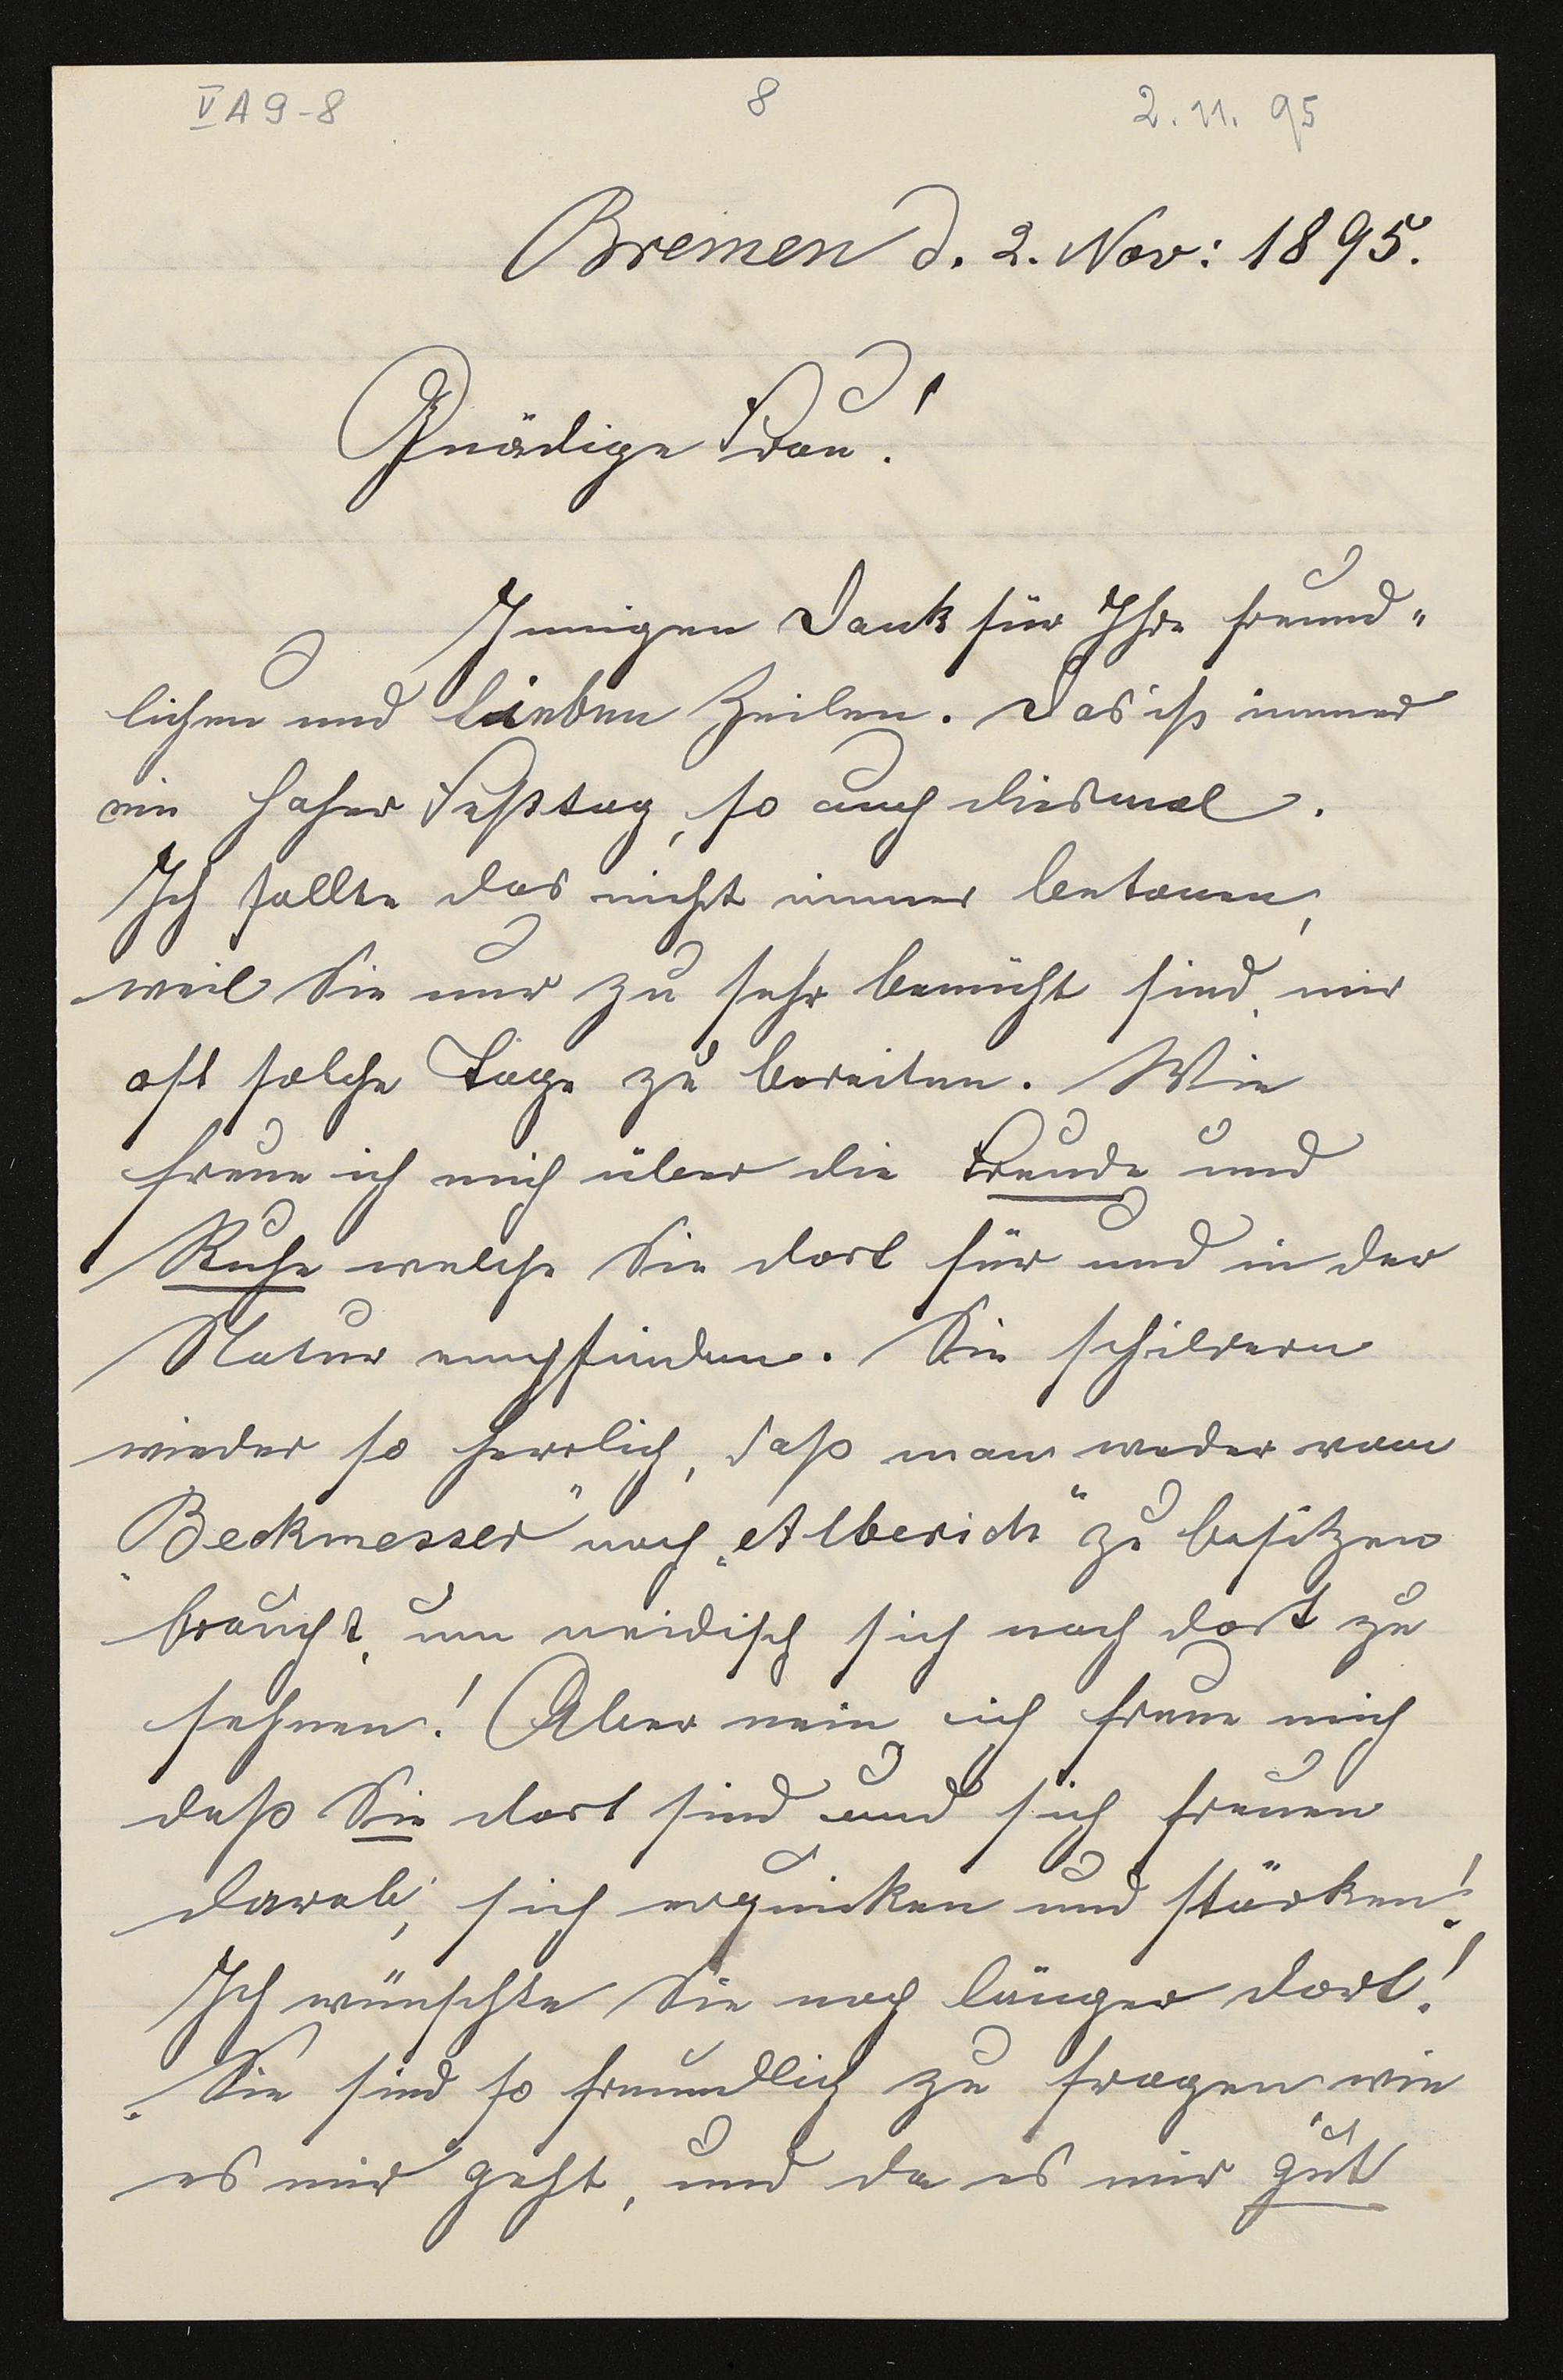 V A 9-8 8 2. 11. 95
Bremen d. 2. Nov: 1895.
Gnädige Frau!
Innigen Dank für Ihre freund"
lichen und lieben Zeilen. Das ist immer
ein hoher Festtag, so auch diesmal.
Ich sollte das nicht immer betonen,
weil Sie nur zu sehr bemüht sind, mir
oft solche Tage zu bereiten. Wie
freue ich mich über die Freude und
Ruhe welche Sie dort für und in der
Natur empfinden. Sie schildern
wieder so herrlich, daß man weder vom
"Beckmesser" noch "Alberich" zu besitzen
braucht, um neidisch sich nach dort zu
sehnen! Aber nein, ich freue mich
daß Sie dort sind und sich freuen
darob, sich erquicken und stärken!
Ich wünschte Sie noch länger dort!
Sie sind so freundlich zu fragen wie
es mir geht, und da es mir gut